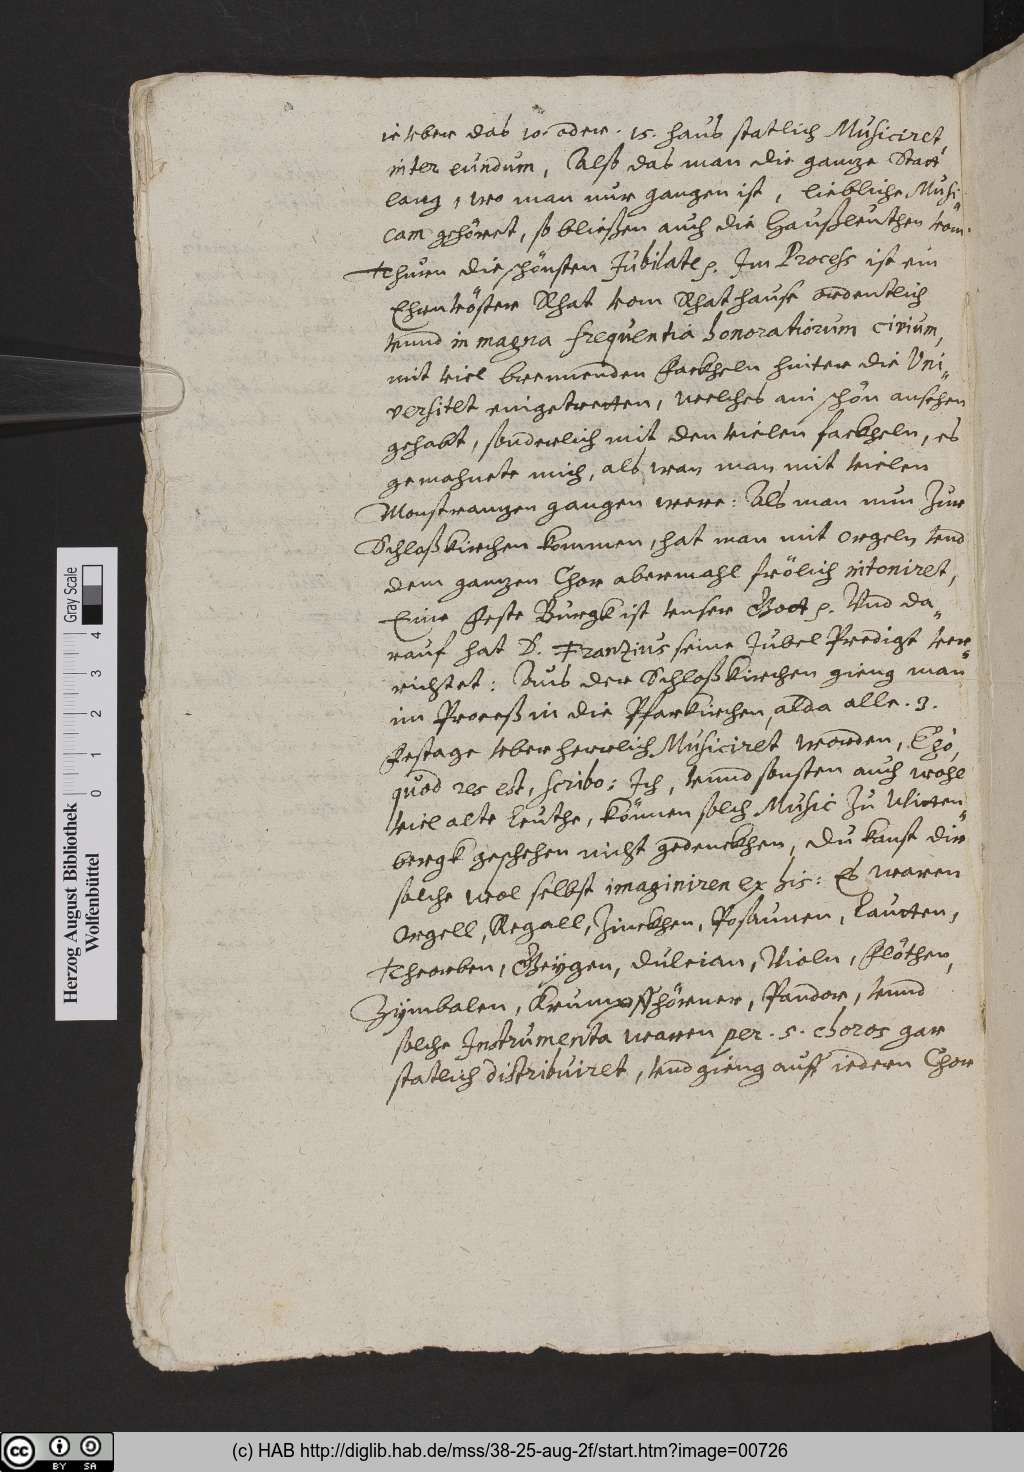 ie vber das 10. oder. 15. haus statlich Musiciret,
inter eundum, Alß das man die gantze Stadt
lang, wo man nur gangen ist, liebliche Musi-
cam gehöret, so bließen auch die Haußleuthen vom
Thurn die schönsten Jubilate. Im Process ist ein
Ehrnvöster Rhat vom Rhathause ordentlich
vnnd in magna frequentia honoratiorum civium,
mit viel brennenden Fackheln hinter die Uni-
versitet eingetretten, welches ein schön ansehen
gehabt, sonderlich mit den vielen fackheln, es
gemahnete mich, als wan man mit vielen
Monstrantzen gangen were: Als man nun Zur
Schloßkirchen kommen, hat man mit orgeln vnd
dem gantzen Chor abermahl frölich intoniret,
Eine Feste Burgk ist vnser Gott. Vnd da-
rauf hat D. Franzius seine Jubel Predigt ver-
richtet: Aus der Schloßkirchen gieng man
im Proceß in die Pfarkirchen, alda alle. 3.
Festage vber herrlich Musiciret worden, Ego,
quod res est, scribo: Ich, vnnd sonsten auch wohl
viel alte Leuthe, können solch Music Zu Witten-
bergk geschehen nicht gedenckhen, du kanst dir
solche wol selbst imaginiren ex his: Es waren
Orgell, Regall, Zinckhen, Posaunen, Lautten,
Theorben, Geygen, dulcian, Violn, Flöthen,
Zymbalen, Krumphörner, Pandor, vnnd
solche Instrumenta waren per. 5. choros gar
statlich distribuiret, vnd gieng auff iedern Chor
Herzog August Bibliothek
Wolfenbüttel
Gray Scale
0 1 2 3 4
cc BY SA
(c) HAB http://diglib.hab.de/mss/38-25-aug-2f/start.htm?image=00726